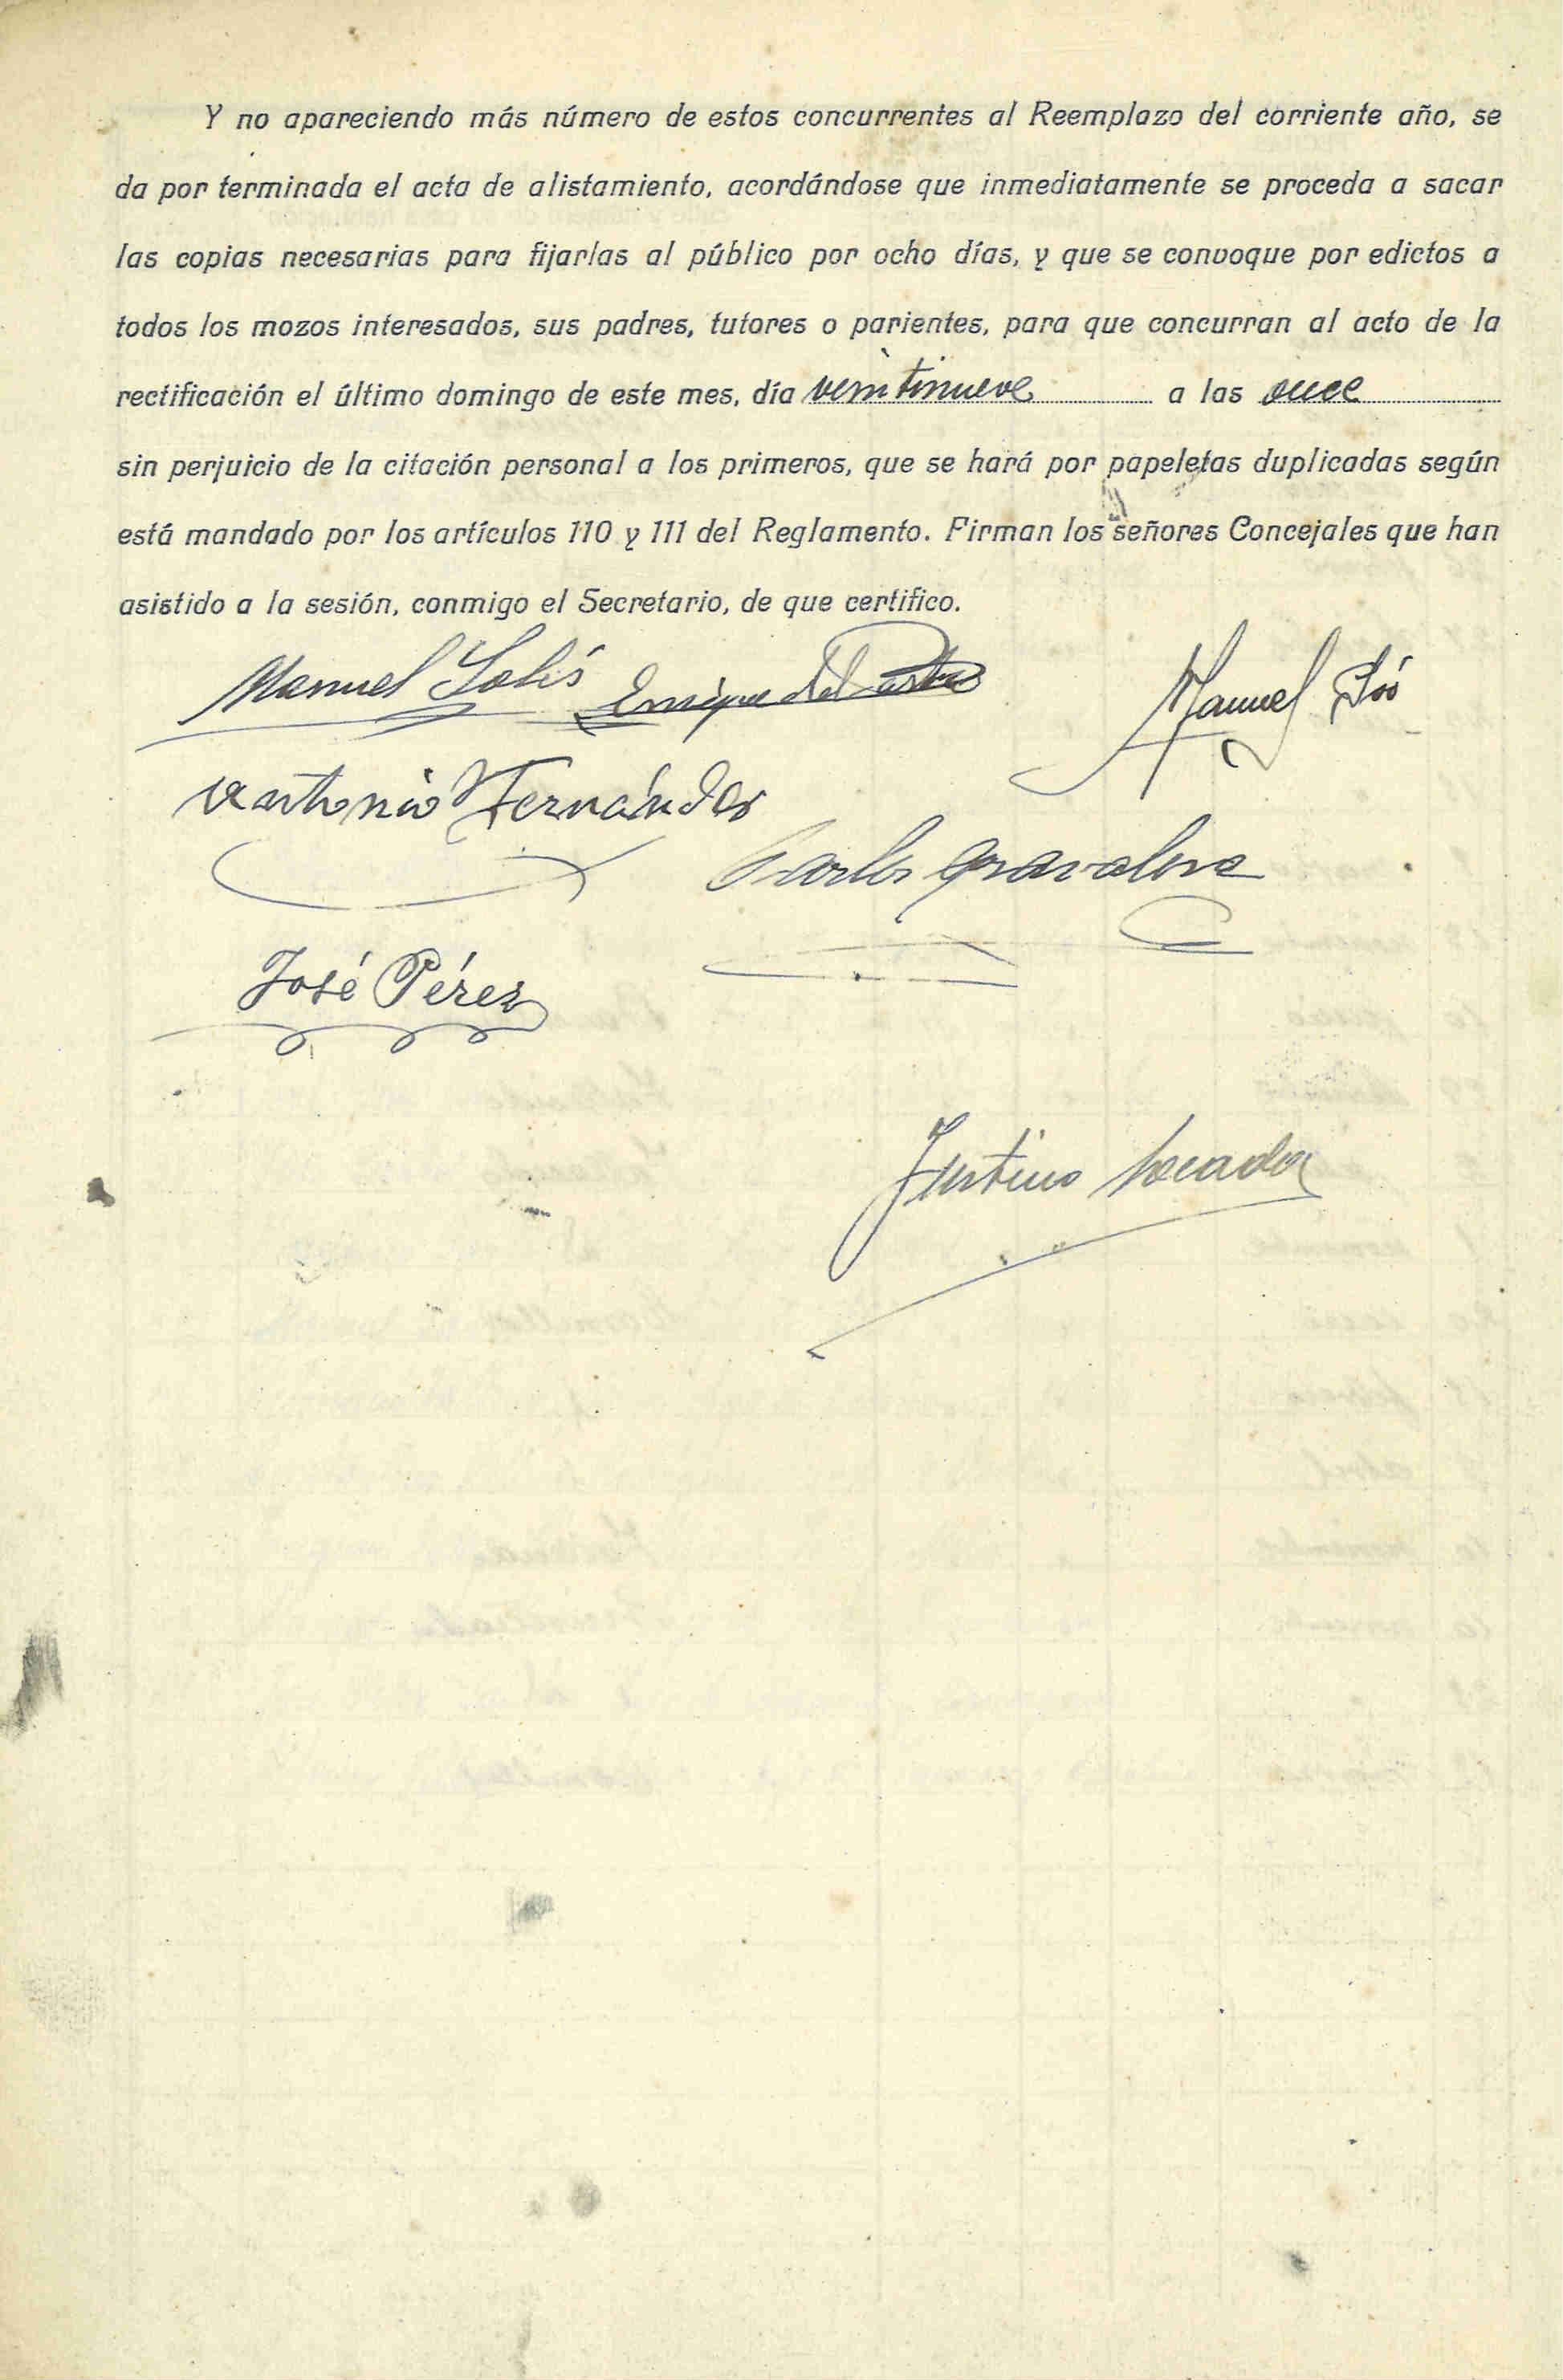 Y no apareciendo más número de estos concurrentes al Reemplazo del corriente año, se
da por terminada el acta de alistamiento, acordándose que inmediatamente se proceda a sacar
las copias necesarias para fijarlas al público por ocho días, y que se convoque por edictos a
todos los mozos interesados, sus padres, tutores o parientes, para que concurran al acto de la
rectificación el último domingo de este mes, día veintinueve a las once
sin perjuicio de la citación personal a los primeros, que se hará por papeletas duplicadas según
está mandado por los artículos 110 y 111 del Reglamento. Firman los señores Concejales que han
asistido a la sesión, conmigo el Secretario, de que certifico.
Manuel Solís Enrique del Manuel
Antonio Fernández
Carlos
José Pérez
Justino